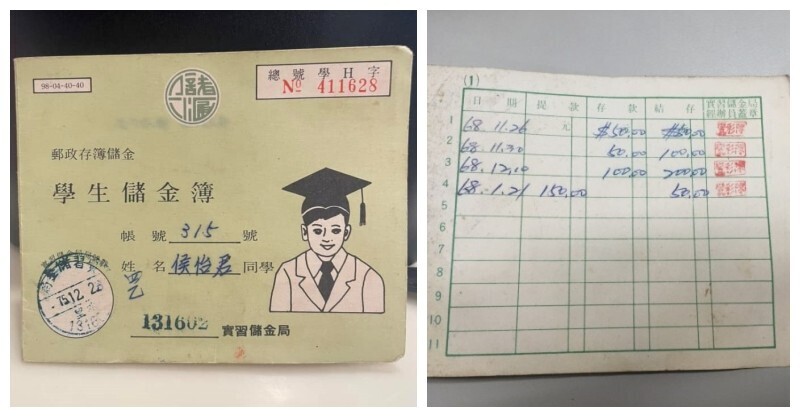 98-04-40-40
總號學H字
№ 411628
郵政存簿儲金
學生儲金簿
帳號 315 號
姓名 侯怡君 同學
四乙
75.12.28
131602 實習儲金局
(1)
日期 提款 存款 結存 實習儲金局經辦員蓋章
1 68.11.26 元 $50.00 $50.00
2 68.11.30 50.00 100.00
3 68.12.10 100.00 200.00
4 68.1.21 150.00 50.00
5
6
7
8
9
10
11